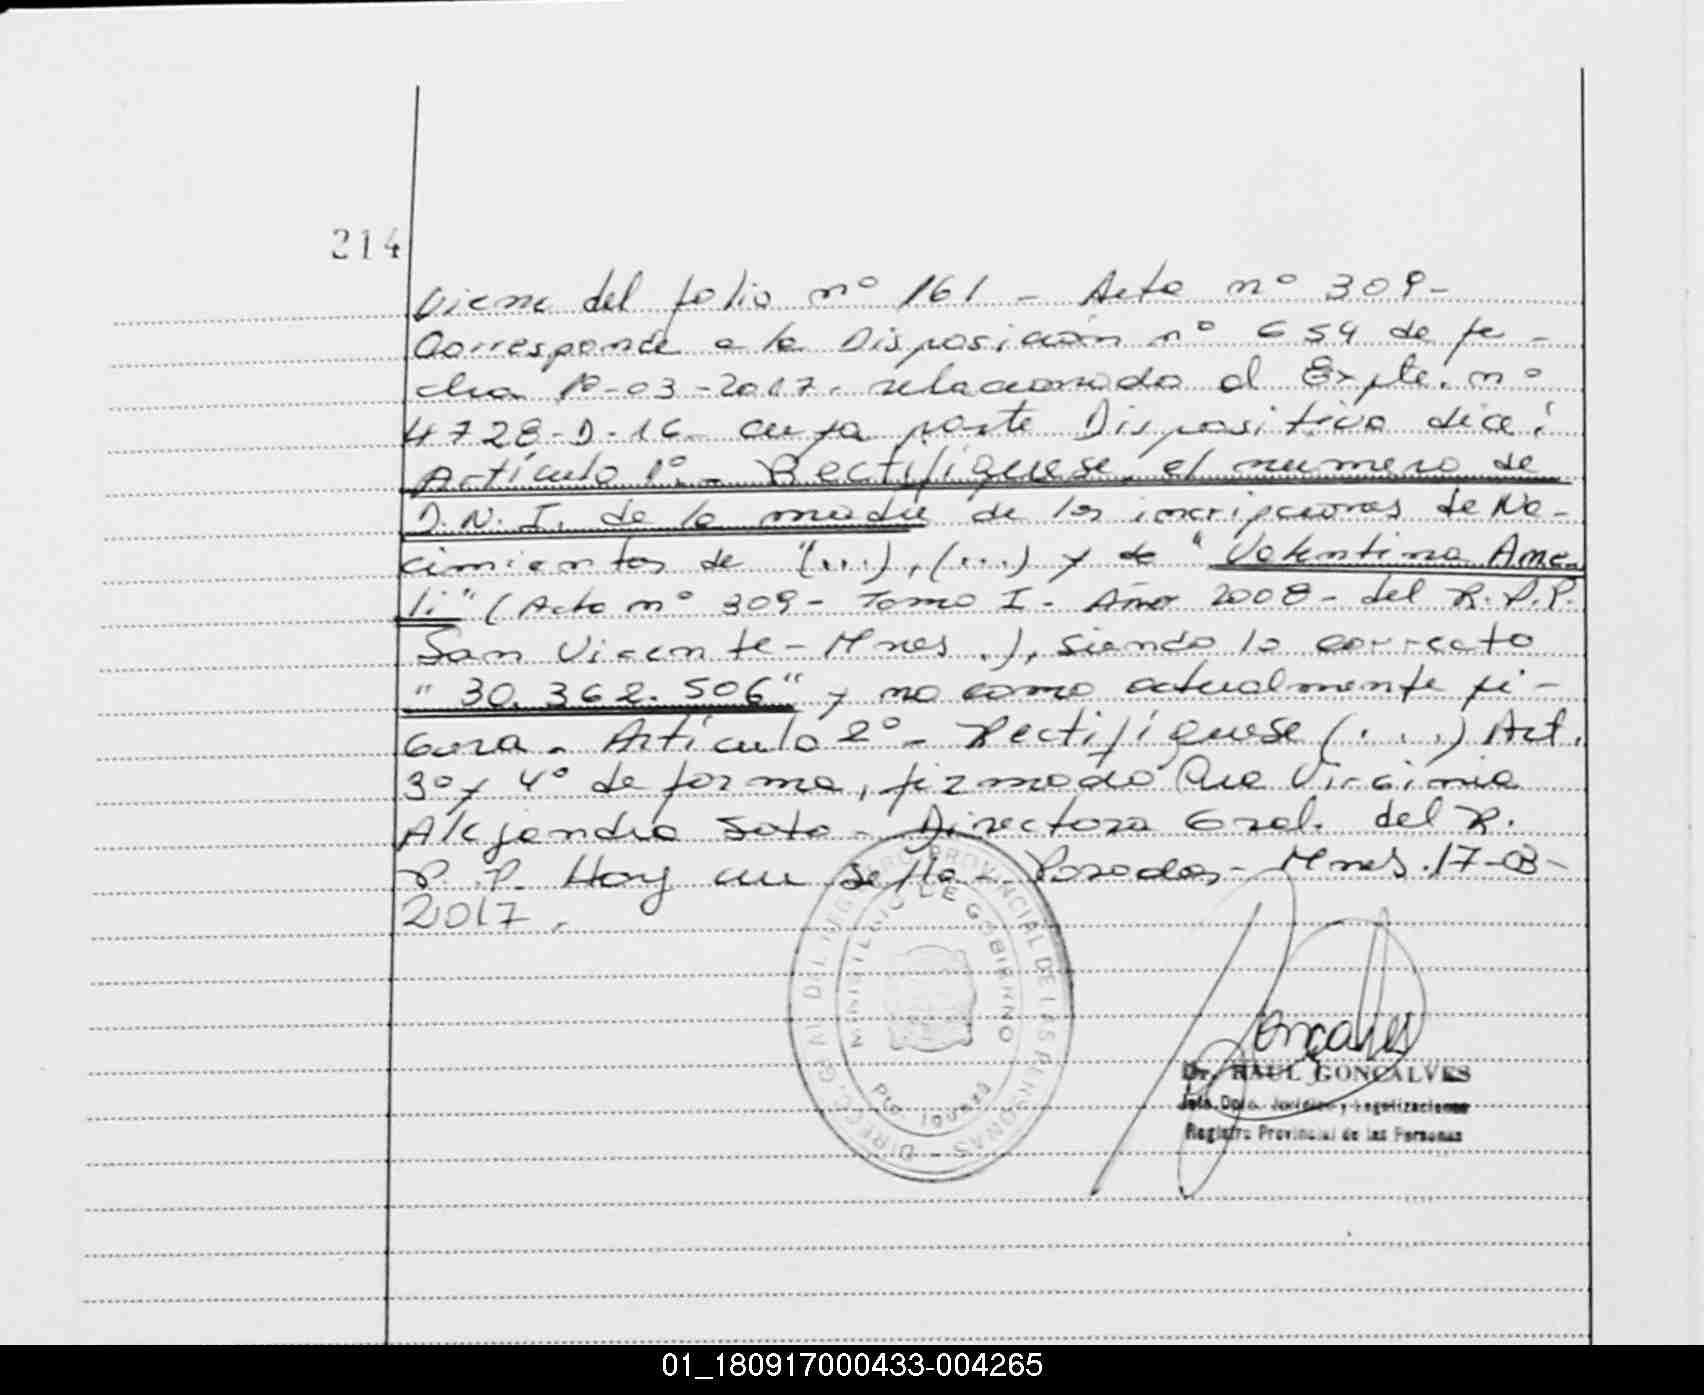 214
Viene del folio nº 161 - Acta nº 309-
Corresponde a la Disposición nº 654 de fe-
cha 1º-03-2017. relacionado al Expte. nº
4728-D-16- cuya parte Dispositiva dice:
Artículo 1º.- Rectifíquese, el numero de
D.N.I. de la madre de las incripciones de Na-
cimientos de "(...), (...) y de "Valentina Ame-
li" (Acta nº 309- Tomo I- Año 2008- del R.P.P.
San Vicente- Mnes.), siendo lo correcto
"30.362.506" y no como actualmente fi-
gura. Artículo 2º- Rectifíquese (...) Art.
3º y 4º de forma, firmado Virginia
Alejandra Soto- Directora Gral. del R.
P.P. Hoy se - Posadas- Mnes. 17-03-
2017.
DIRECC. GRAL. DEL REGISTRO PROVINCIAL DE LAS PERSONAS -
MINISTERIO DE GOBIERNO
Gonçalves
Dr. RAUL GONÇALVES
Jefe Dpto. Jurídico y Legalizaciones
Registro Provincial de las Personas
01_180917000433-004265